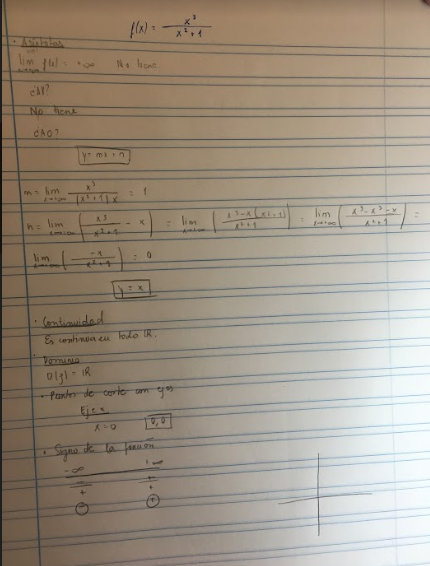 f(x) = x³ / x²+1
· Asíntotas
lim f(x) = +∞ No tiene
x→+∞
¿AV?
No tiene
¿AO?
y = mx + n
m = lim x→+∞ x³ / (x²+1)x = 1
n = lim x→+∞ (x³ / x²+1 − x) = lim x→+∞ (x³−x(x²+1) / x²+1) = lim x→+∞ (x³−x³−x / x²+1) =
lim x→+∞ (−x / x²+1) = 0
y = x
· Continuidad
Es continua en todo ℝ.
· Dominio
D(f) = ℝ
· Puntos de corte con ejes
Eje x
x=0 0,0
· Signo de la función
-∞ +∞
− +
+ +
− +